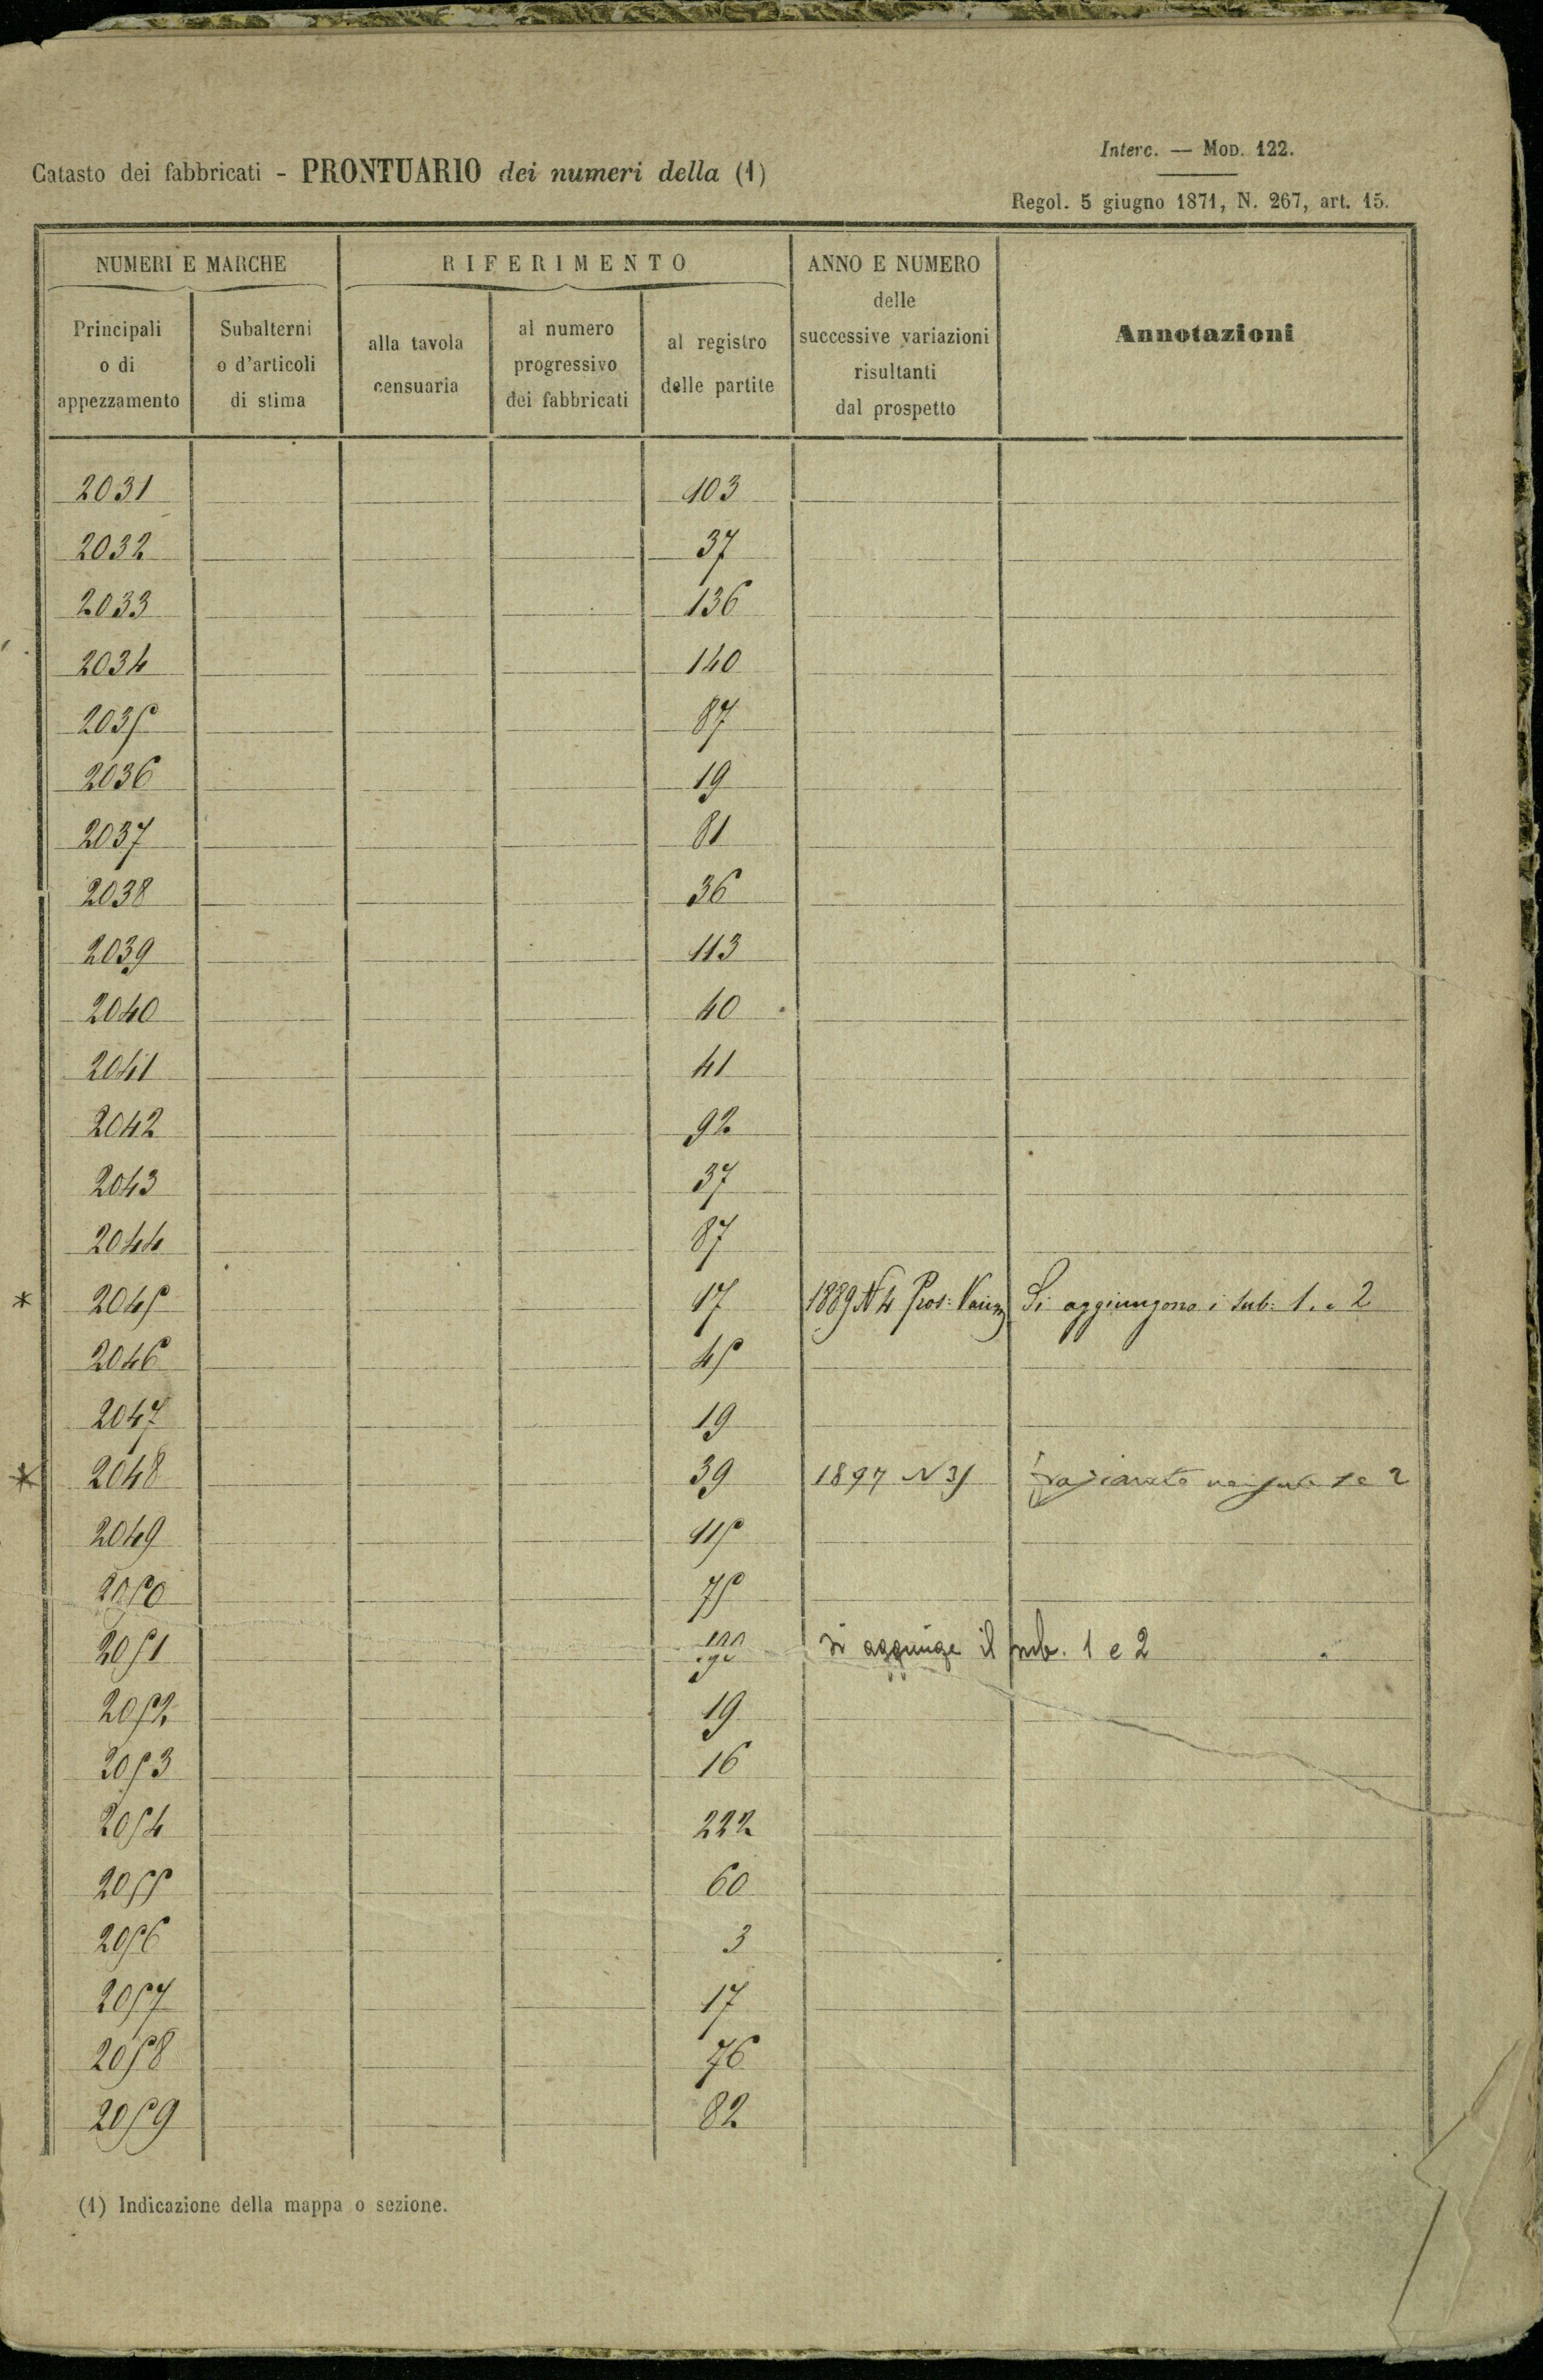 Interc. — MOD. 122.
Catasto dei fabbricati - PRONTUARIO dei numeri della (1)
Regol. 5 giugno 1871, N. 267, art. 15.
NUMERI E MARCHE
RIFERIMENTO
ANNO E NUMERO
delle
successive variazioni
risultanti
dal prospetto
Annotazioni
Principali
o di
appezzamento
Subalterni
o d'articoli
di stima
alla tavola
censuaria
al numero
progressivo
dei fabbricati
al registro
delle partite
2031 103
2032 37
2033 136
2034 140
2035 87
2036 19
2037 81
2038 36
2039 113
2040 40
2041 41
2042 92
2043 37
2044 87
* 2045 17 1889 N 4 Pros: Si aggiungono i sub: 1. e 2
2046 45
2047 19
* 2048 39 1897 N 35 1 e 2
2049 115
2050 75
2051 si aggiunge il sub. 1 e 2
2052 19
2053 16
2054 222
2055 60
2056 3
2057 17
2058 76
2059 82
(1) Indicazione della mappa o sezione.